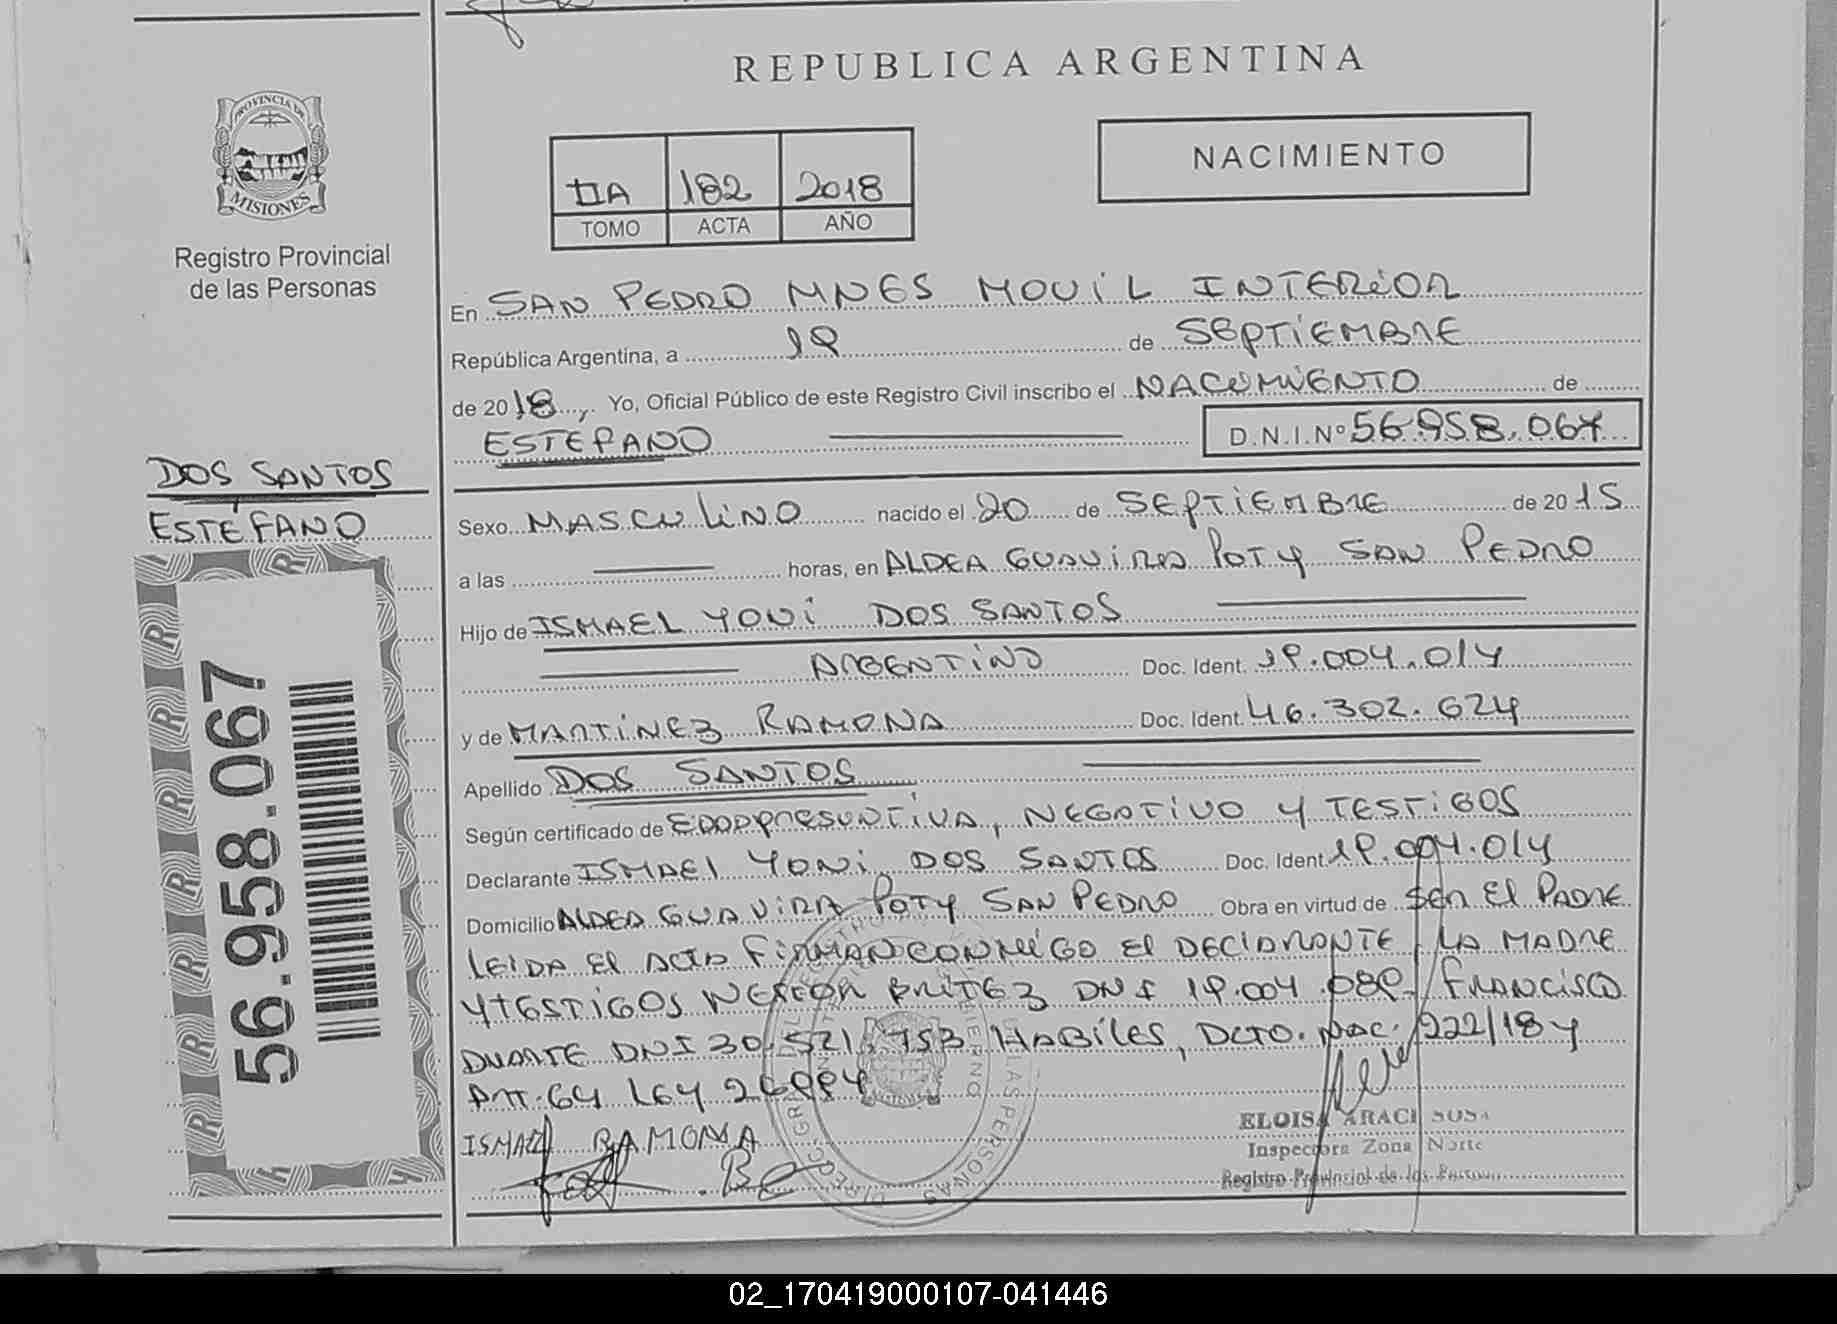 REPUBLICA ARGENTINA
PROVINCIA DE
MISIONES
Registro Provincial
de las Personas
IIA 182 2018
TOMO ACTA AÑO
NACIMIENTO
En SAN PEDRO MNES MOVIL INTERIOR
República Argentina, a 19 de SEPTIEMBRE
de 2018, Yo, Oficial Público de este Registro Civil inscribo el NACIMIENTO de
ESTEFANO D.N.I.Nº 56.958.067
DOS SANTOS
ESTEFANO
56.958.067
Sexo MASCULINO nacido el 20 de SEPTIEMBRE de 2015
a las horas, en ALDEA GUAVIRA POTY SAN PEDRO
Hijo de ISMAEL YONI DOS SANTOS
ARGENTINO Doc. Ident. 19.004.014
y de MARTINEZ RAMONA Doc. Ident. 46.302.624
Apellido DOS SANTOS
Según certificado de EDAD PRESUNTIVA, NEGATIVO Y TESTIGOS
Declarante ISMAEL YONI DOS SANTOS Doc. Ident. 19.004.014
Domicilio ALDEA GUAVIRA POTY SAN PEDRO Obra en virtud de SER El PADRE
LEIDA El ACTA FIRMAN CONMIGO El DECLARANTE, LA MADRE
Y TESTIGOS NESTOR BRITEZ DNI 19.004.089 FRANCISCO
DUARTE DNI 30.521.753 HABILES, DCTO. NAC. 222/18 y
ART. 64 LEY 26994
ISMAEL RAMONA
ELOISA ARACI SOSA
Inspectora Zona Norte
Registro Provincial de las Personas
02_170419000107-041446